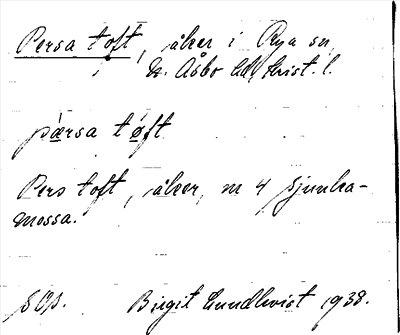 Persa toft, åker i Rya sn
N. Åsbo hd, Krist. l.
pæ̀rsa tǿft
Pers toft, åker, nr 4 Sjunka-
mossa.
Birgit Lundkvist 1938.